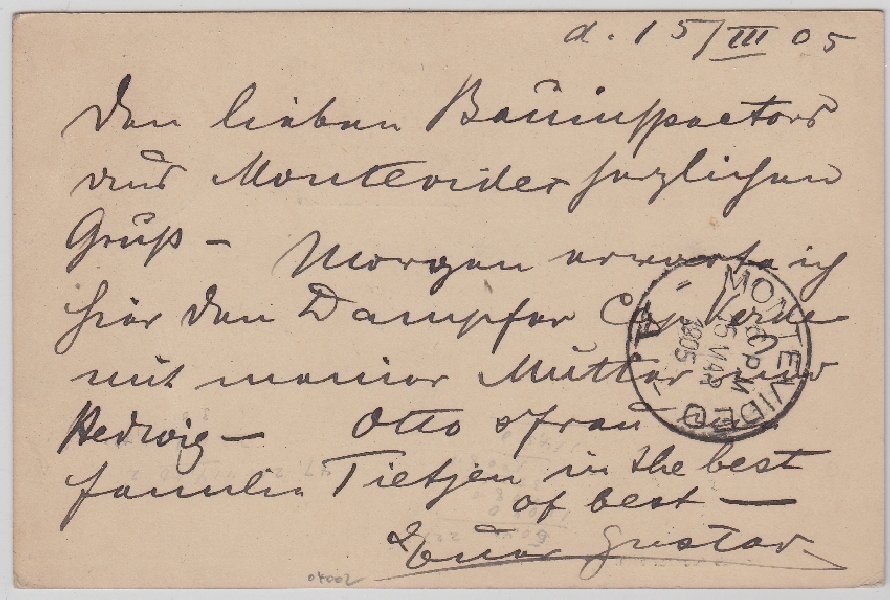 d. 15/III 05
Den lieben Bauinspectors
aus Montevideo herzlichen
Gruß – Morgen erwarte ich
hier den Dampfer Cap Verde
mit meiner Mutter und
Hedwig – Otto & Frau und
Familie Tietjen in the best
of best —
Euer Gustav.
MONTEVIDEO
15
PM
1905
04002